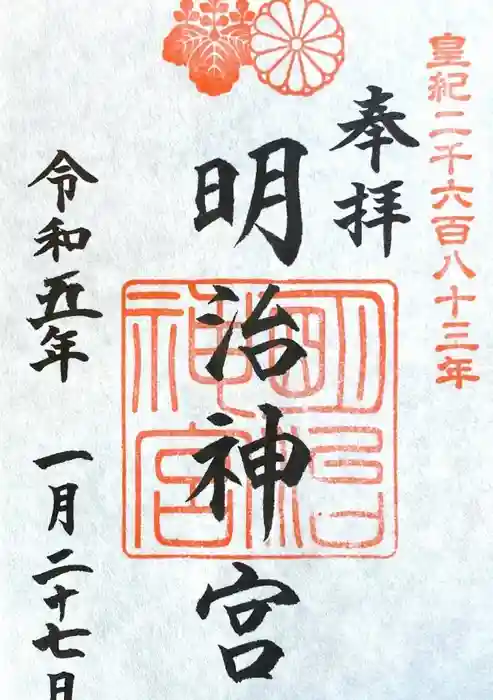 皇紀二千六百八十三年
奉拝
明治神宮
明治
神宮
令和五年 一月二十七日